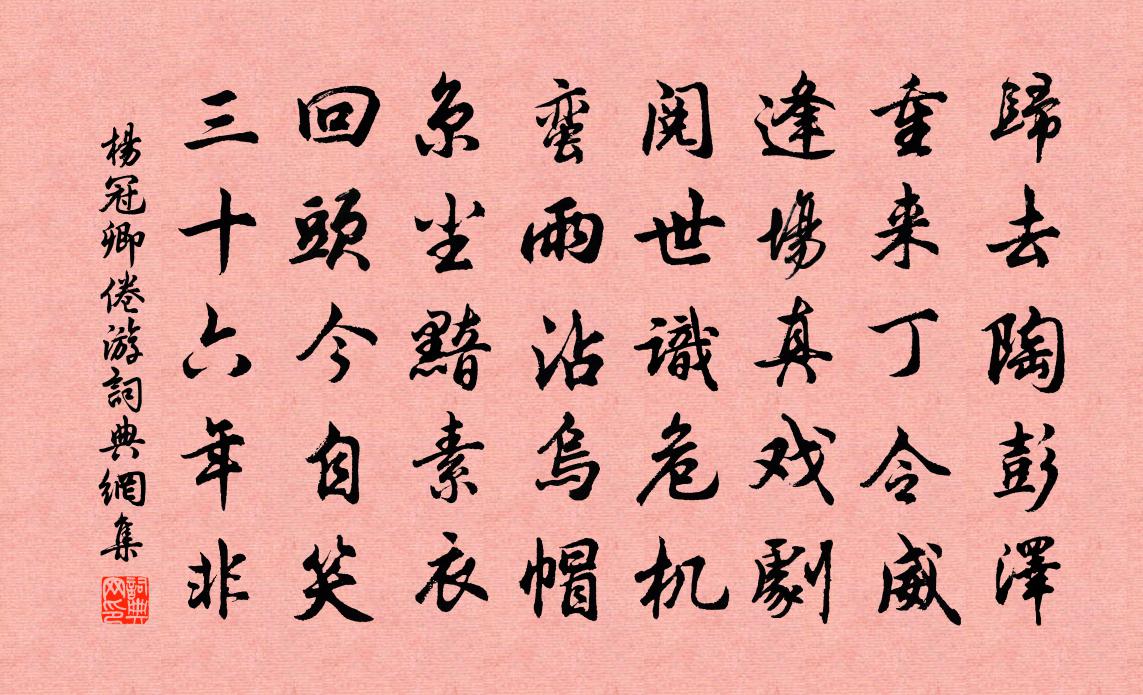 歸去陶彭澤
重来丁令威
逢場真戏劇
閱世識危机
蛮雨沾烏帽
京尘黯素衣
回頭今自笑
三十六年非
楊冠卿倦游詞典網集
詞典网印